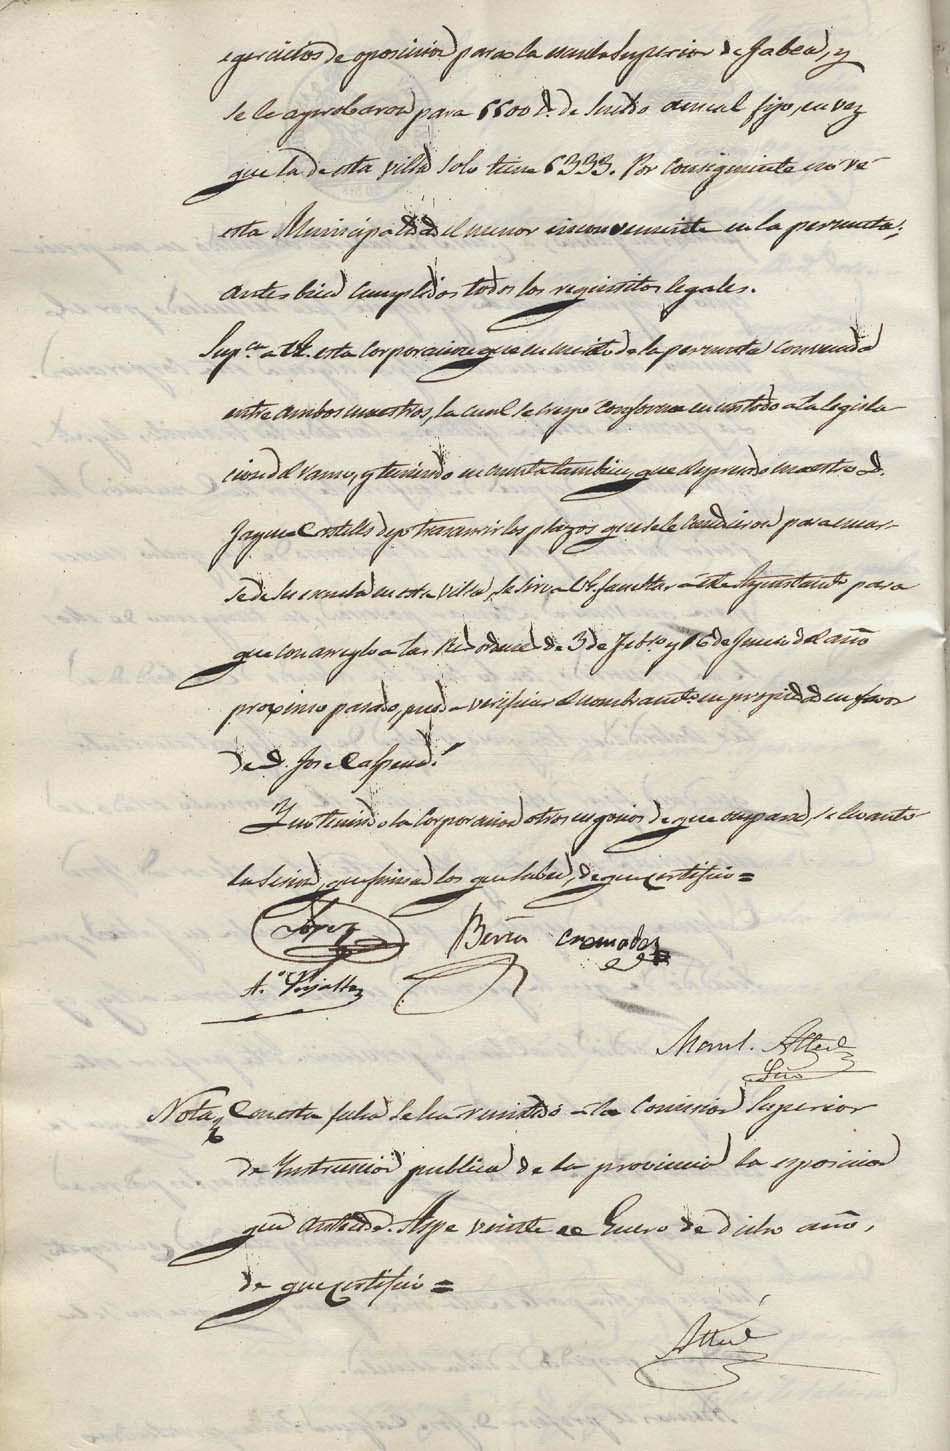 egercicios de oposicion para la escuela Superior de Jabea, y
se le aprobaron para 6600 r.s de sueldo anual fijo, en vez
que la de esta villa solo tiene 6333. Por consiguiente no vé
esta Municipalidad el menor inconveniente en la permuta;
antes bien cumplidos todos los requisitos legales.
Sup.ca a V.E. esta Corporacion que en merito de la permuta convenida
entre ambos maestros, la cual se creyo conforme en un todo a la legisla
cion del ramo, y teniendo en cuenta tambien, que el maestro D.
Jayme Castells dejo transcurrir los plazos que se le concedieron para encar-
se de su escuela en esta villa, se sirva V.E. facultar a este Ayuntam.to para
que con arreglo a las R.s ordenes de 3 de Febr.o y 16 de Junio del año
proximo pasado, pueda verificar el nombram.to en propiedad en favor
de D. Jose Calpena.
Y no teniendo la Corporacion otros negocios de que ocuparse, se levanto
la sesion, que firman los que saben, de que certifico =
Lopez Beria Cremades
A.o Pujalte
Manl. Alted
Srio
Nota Con esta fecha se ha remitido a la Comision Superior
de Instruccion publica de la provincia la esposicion
que antecede. Aspe veinte de Enero de dicho año,
de que certifico =
Alted